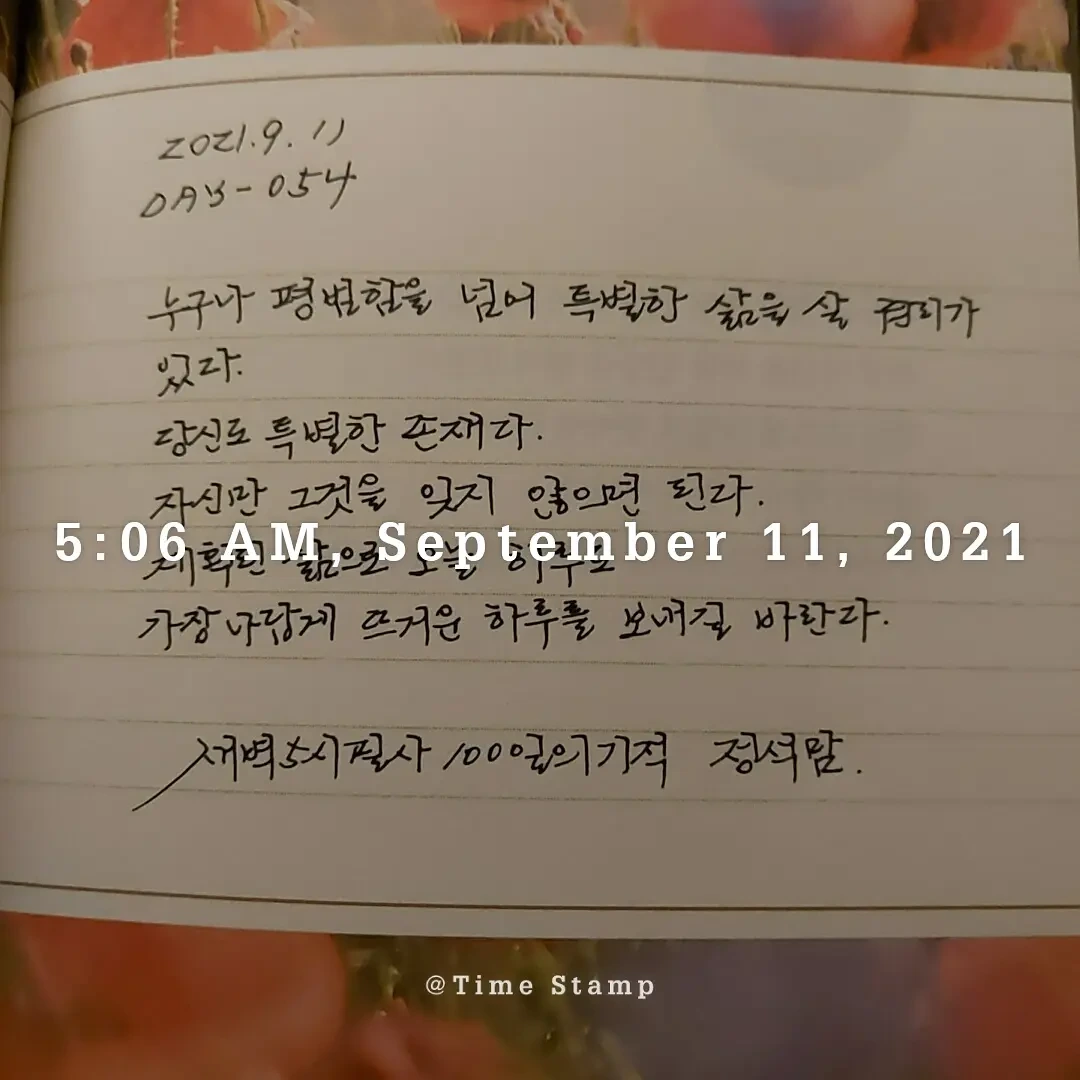 2021.9.11
DAY-054
누구나 평범함을 넘어 특별한 삶을 살 권리가
있다.
당신도 특별한 존재다.
자신만 그것을 잊지 않으면 된다.
5:06 AM, September 11, 2021
계획된 삶으로 오늘 하루도
가장 나답게 뜨거운 하루를 보내길 바란다.
새벽5시필사 100일의기적 정석맘.
@Time Stamp